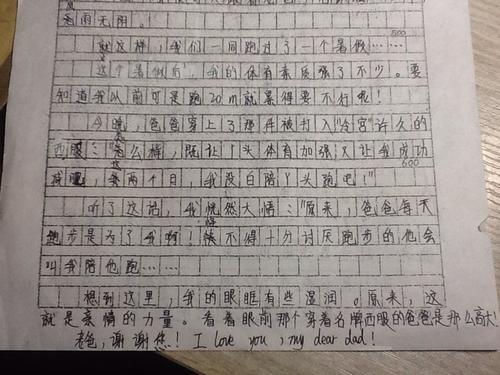 风雨无阻。
就这样，我们一同跑过了一个暑假……
500
这个暑假后，我的体育素质强了不少。要
知道我以前可是跑20m就累得要不行啦！
今晚，爸爸穿上了那件被打入“冷宫”许久的
西服：“怎么样，既让丫头体育加强又让我成功
600
减肥，这两个月，我没白陪丫头跑吧！”
听了这话，我恍然大悟：“原来，爸爸每天
跑步是为了我啊！怪不得十分讨厌跑步的他会
叫我陪他跑……
想到这里，我的眼眶有些湿润。原来，这
就是亲情的力量。看着眼前那个穿着名牌西服的爸爸是那么高大！
老爸，谢谢您！I love you，my dear dad！